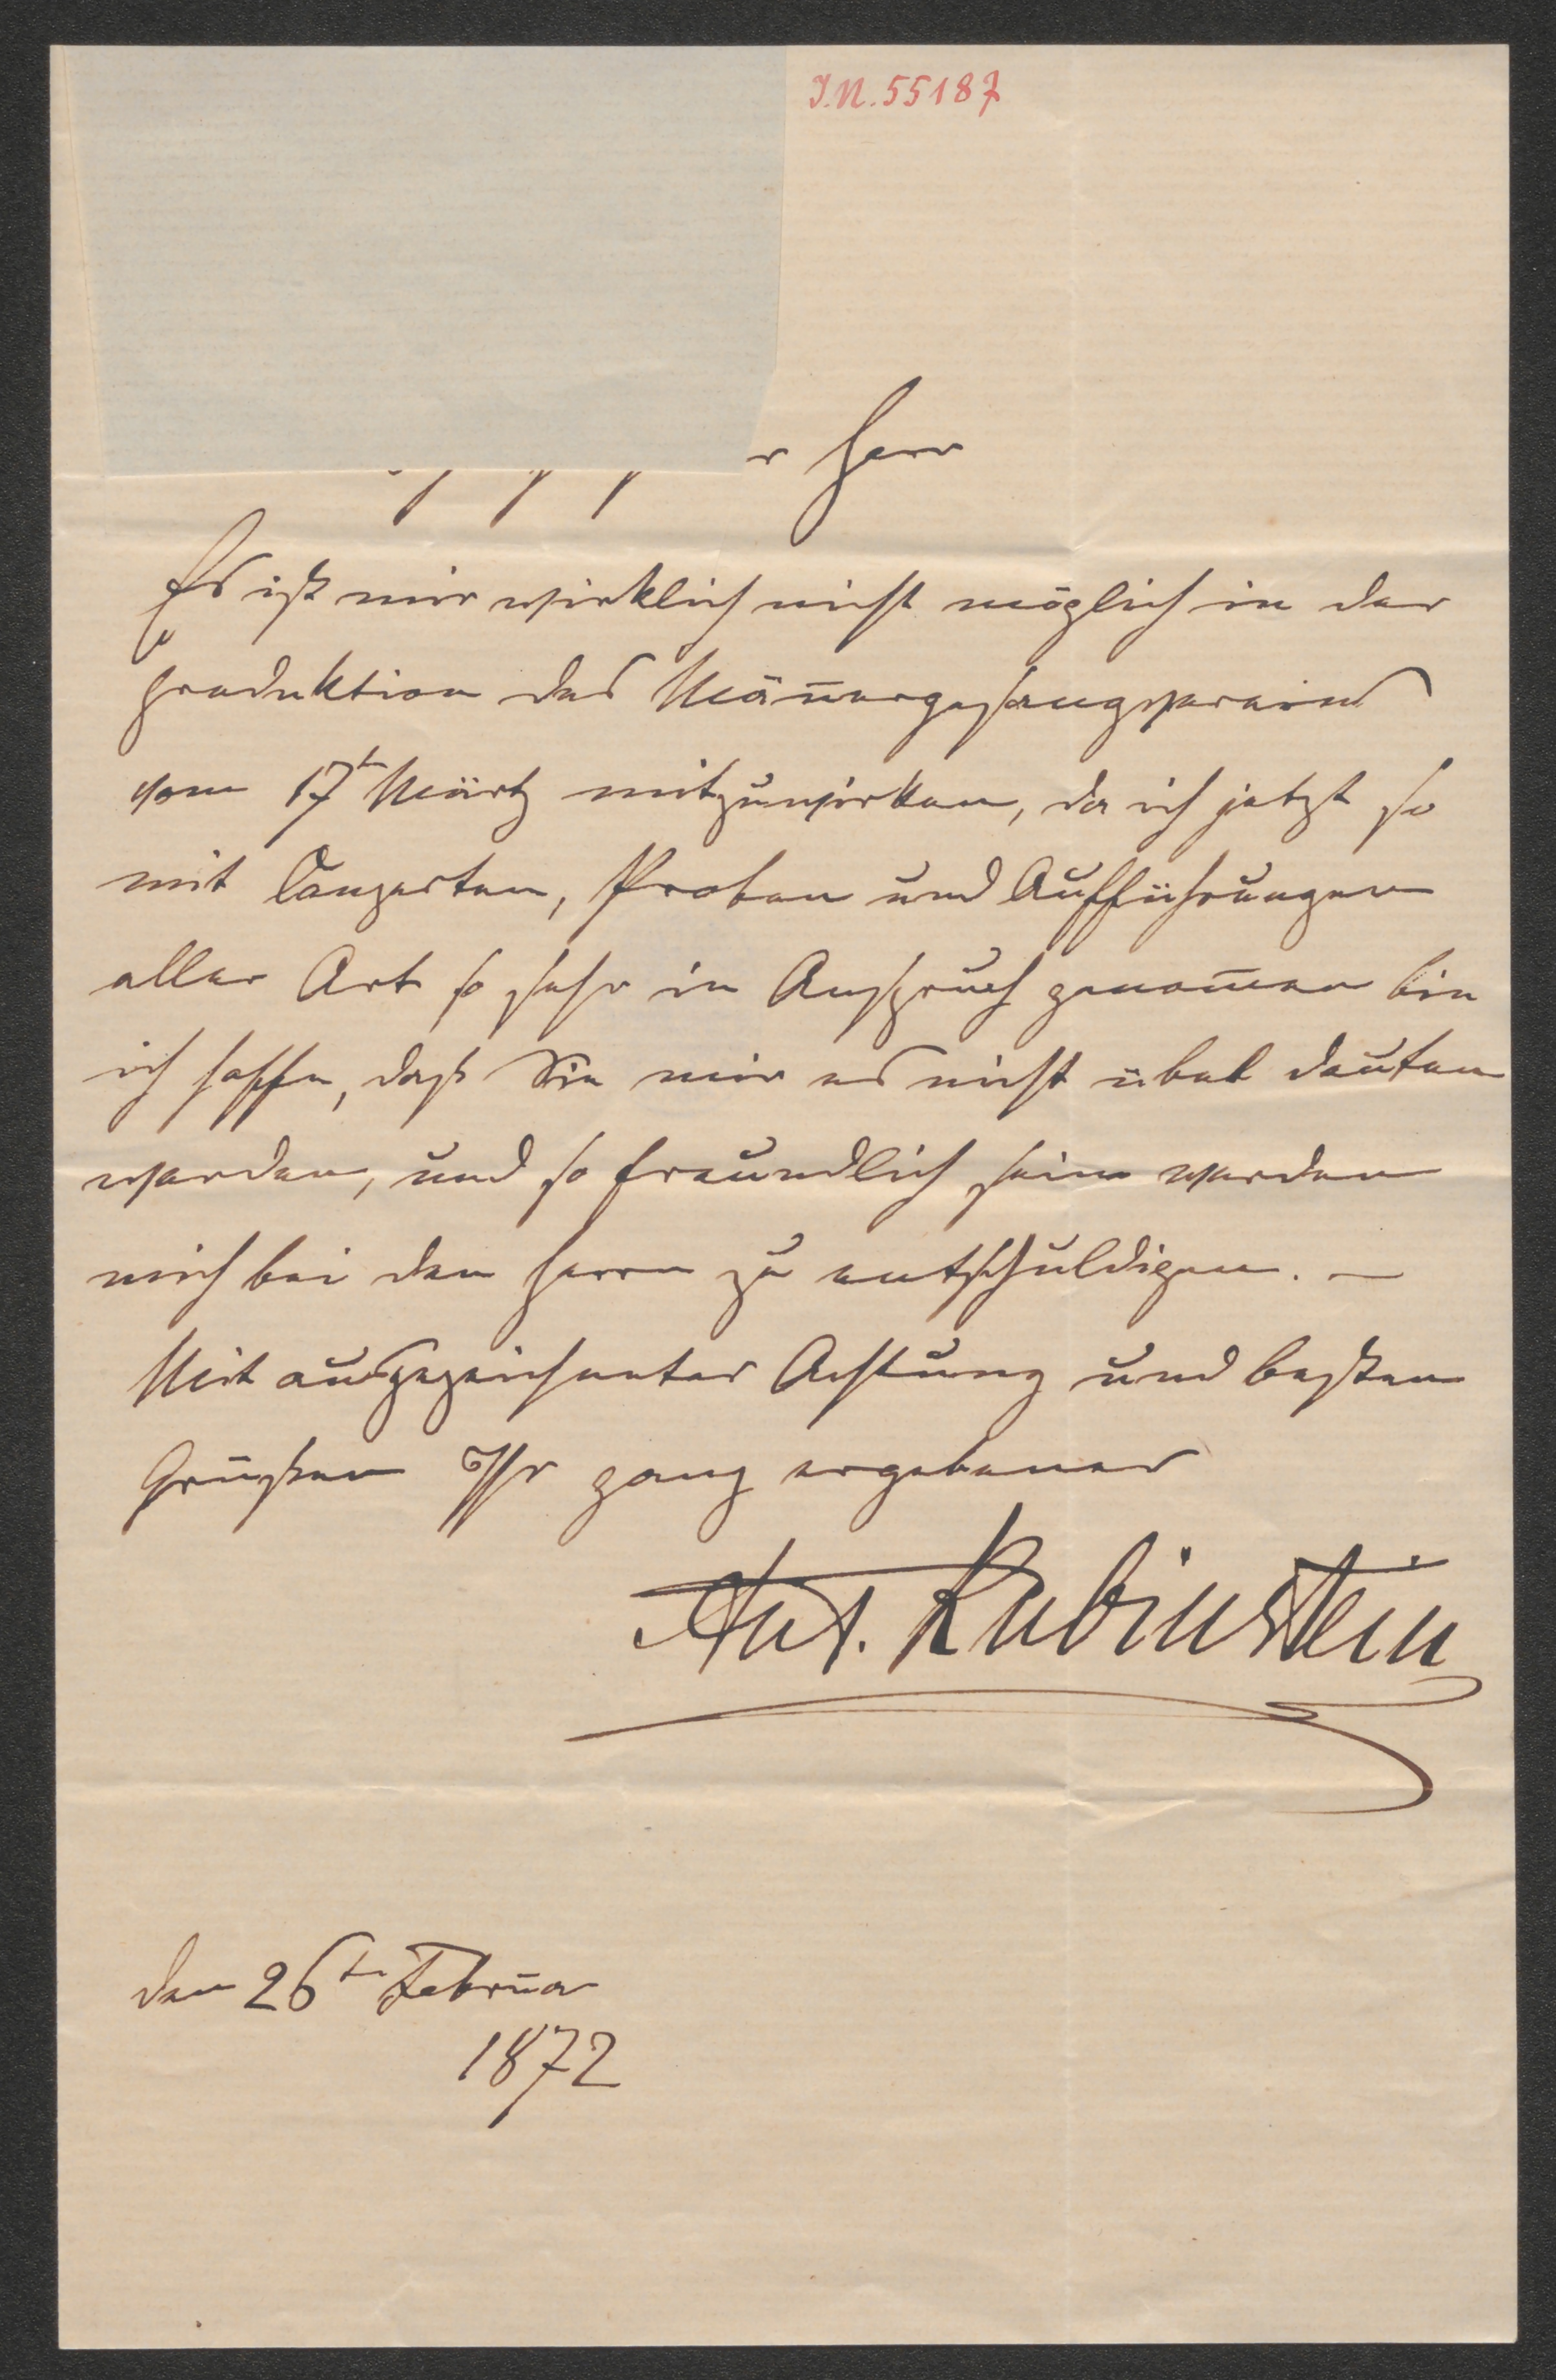 I.N. 55187
r Herr
Es ist mir wirklich nicht möglich in der
Produktion des Mäñergesangsvereins
vom 17t März mitzuwirken, da ich jetzt so
mit Conzerten, Proben und Aufführungen
aller Art so sehr in Anspruch genom̄en bin
ich hoffe, dass Sie mir es nicht übel deuten
werden, und so freundlich sein werden
mich bei den Herrn zu entschuldigen. —
Mit ausgezeichneter Achtung und besten
Grüssen Ihr ganz ergebener
Ant. Rubinstein
den 26tn Februar
1872